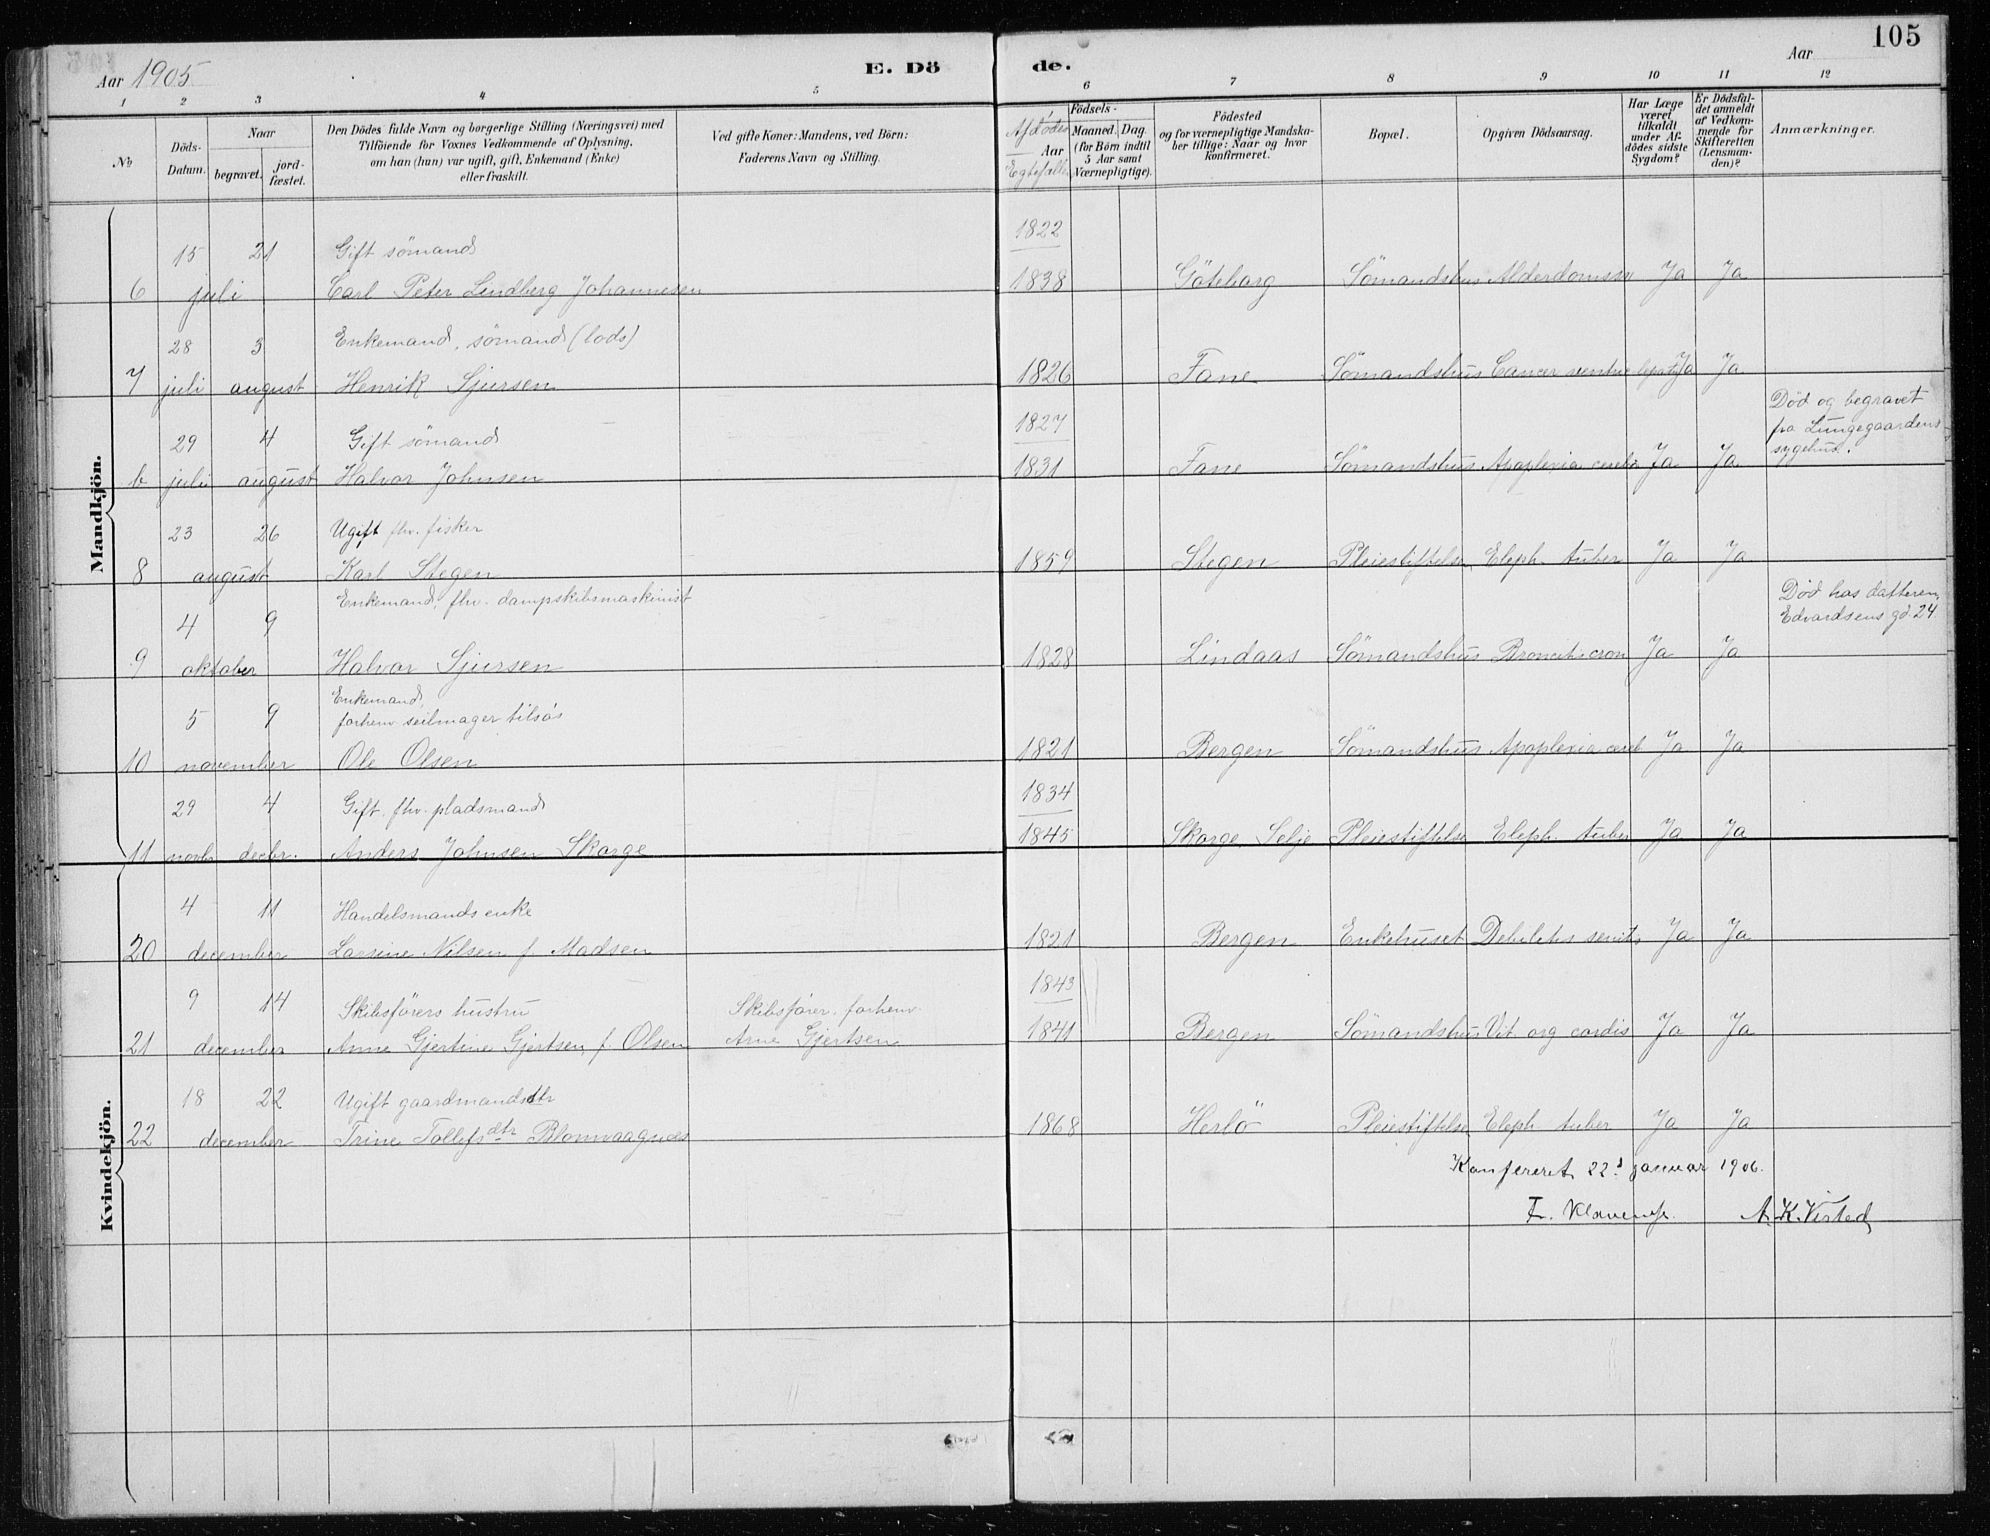 105
Aar 1905
E. Dö
de.
Aar
1 2 3 4 5 6 7 8 9 10 11 12
No
Döds-Datum.
Naar
begravet.
jord-fæstet.
Den Dödes fulde Navn og borgerlige Stilling (Næringsvei) med
Tilföiende for Voxnes Vedkommende af Oplysning,
om han (hun) var ugift, gift, Enkemand (Enke)
eller fraskilt.
Ved gifte Koner: Mandens, ved Börn:
Faderens Navn og Stilling.
Afdødes
Aar
Egtefælles
Födsels-
Maaned. Dag.
(for Börn indtil
5 Aar samt
Værnepligtige).
Födested
og for værnepligtige Mandska-
ber tillige: Naar og hvor
konfirmeret.
Bopæl.
Opgiven Dödsaarsag.
Har Læge
været
tilkaldt
under Af-
dödes sidste
Sygdom?
Er Dödsfal-
det anmeldt
af Vedkom-
mende for
Skifteretten
(Lensman-
den)?
Anmærkninger.
Mandkjön.
15 21 Gift sömand 1822
6 juli Carl Peter Lindberg Johannesen 1838 Göteborg Sömandshus Alderdomssv Ja Ja
28 3 Enkemand, sömand (lods)
7 juli august Henrik Sjursen 1826 Fane Sömandshus Cancer ventric Ja Ja
Död og begravet
fra Lungegaardens
sygehus.
29 4 Gift sömand 1827
6 juli august Halvor Johnsen 1831 Fane Sömandshus Apoplexia cerebri Ja Ja
23 26 Ugift fhv. fisker
8 august Karl Stegen 1859 Stegen Pleiestiftelsen Eleph. tuber Ja Ja
Enkemand, fhv. dampskibsmaskinist
4 9
Död hos datteren,
Edvardsens gd. 24
9 oktober Halvor Sjursen 1828 Lindaas Sömandshus Broncit. cron Ja Ja
Enkemand,
5 9 forhenv. seilmager tilsös
10 november Ole Olsen 1821 Bergen Sömandshus Apoplexia cereb Ja Ja
29 4 Gift. fhv. pladsmand 1834
11 novbr decbr. Anders Johnsen Skorge 1845 Skorge Selje Pleiestiftelse Eleph. tuber Ja Ja
Kvindekjön.
4 11 Handelsmands enke
20 december Larsine Nilsen f. Madsen 1821 Bergen Enkehuset Debilitas senilis Ja Ja
9 14 Skibsførers hustru Skibsfører. forhenv. 1843
21 december Anne Gjertine Gjertsen, f. Olsen Arne Gjertsen 1841 Bergen Sömandshus Vit. org cordis Ja Ja
18 22 Ugift gaardmandsdtr
22 december Trine Tollefsdtr Blomvaagnes 1868 Herlö Pleiestiftelse Eleph tuber Ja Ja
Konfereret 22d januar 1906.
A. K. Visted